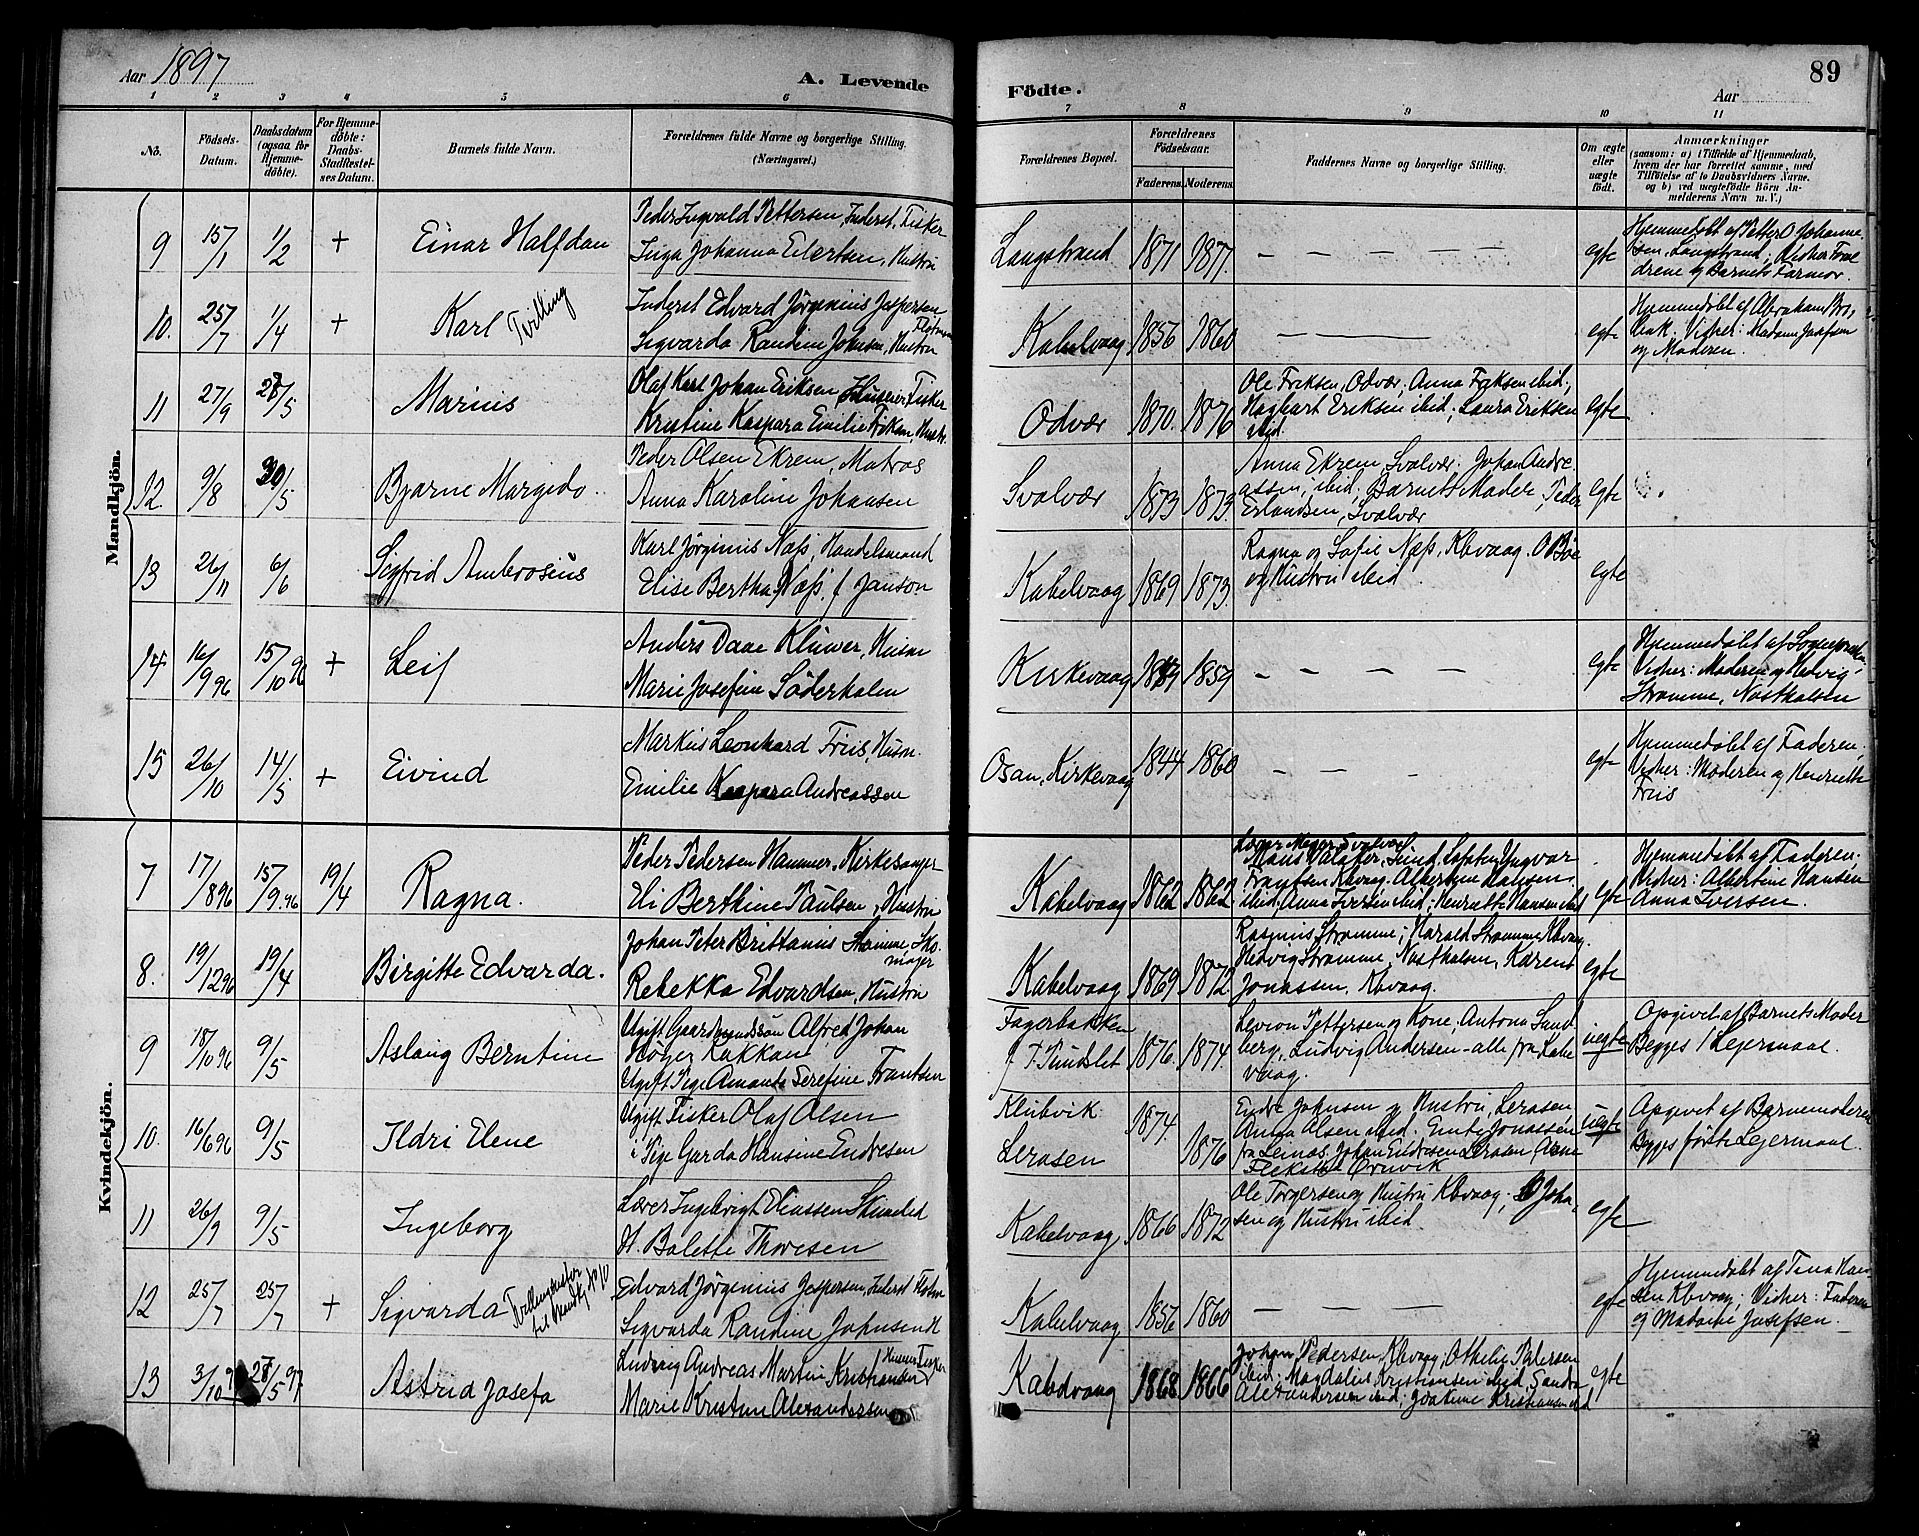 Aar 1897
A. Levende
Födte.
Aar
89
1 2 3 4 5 6 7 8 9 10 11
Nö.
Födsels-Datum.
Daabsdatum (ogsaa for Hjemme-döbte).
For Hjemme-döbte: Daabs-Stadfæstel-ses Datum.
Barnets fulde Navn.
Forældrenes fulde Navne og borgerlige Stilling. (Næringsvei.)
Forældrenes Bopæl.
Forældrenes Födselsaar.
Faderens. Moderens.
Faddernes Navne og borgerlige Stilling.
Om ægte eller uægte födt.
Anmærkninger
(saasom: a) i Tilfælde af Hjemmedaab, hvem der har forrettet samme, med Tilföielse af to Daabsvidners Navne, og b) ved uægtefödte Börn An-melderens Navn m. V.)
Mandkjön.
9 15/1 1/2 + Einar Halfdan
Peder Ingvald Pettersen, Inderst, Fisker
Inga Johanna Eilertsen, Hustru
Langstrand 1871 1877. — — — — egte
Hjemmedøbt af Petter O Johanne
sen, Langstrand, Vidner Foræl
drene og Barnets Farmor.
10. 25/7 1/4 + Karl Tvilling
Inderst Edvard Jørgenius Jespersen
Sigvarda Randine Johnsen, Hustru
Kabelvaag 1856 1860 — — egte
Hjemmedøbt af Abraham
Vidner: Madam Josefsen
og Moderen.
11 27/9 28/5 Marius
Olaf Karl Johan Eriksen, Fisker
Kristine Kaspara Emilie Eriksen, Hustr.
Odvær 1870. 1876
Ole Eriksen, Odvær, Anna Eriksen ibid.,
Hagbart Eriksen ibid; Laura Eriksen
ibid.
egte
12. 9/8 30/5 Bjarne Margido.
Peder Olsen Ekrem, Matros
Anna Karoline Johansen
Svolvær 1873 1873.
Anna Ekrem, Svolvær. Johan Andre
assen, ibid; Barnets Moder, Peder
Erlandsen, Svolvær
egte
13 26/11 6/6 Sigfrid Ambrosius
Karl Jørginius Næss, Handelsmand
Elise Bertha Næss, f Janson
Kabelvaag 1869 1873.
Ragna og Sofie Næss, Kbvaag, O Bøe
og Hustru ibid.
egte
14 16/9 96 15/10 96 + Leif
Anders Daae Klüwer,
Marie Josefine Söderholm
Kirkevaag 1859 — — — — egte
Hjemmedøbt af Sognepræsten
Vidner: Moderen og Hedvig
Strømme, Nøstholsen
15 26/10 14/5 + Eivind
Markus Leonhard Friis,
Emilie Kaspara Andreassen
Osan, Kirkevaag 1844 1860 — — — egte
Hjemmedøbt af Faderen.
Vidner: Moderen og Henriette
Friis
Kvindekjön.
7 17/8 96 15/9.96 19/4 Ragna.
Peder Pedersen Hammer, Kirkesanger
Eli Berthine Paulsen, Hustru
Kabelvaag 1862 1862
Svolvær
Yngvar
Frantsen Kbvaag, Albertine Hansen
ibid, Anna Iversen ibid; Henriette Hansen ibid
egte
Hjemmedøbt af Faderen.
Vidner: Albertine Hansen
Anna Iversen.
8. 19/12 96 19/4 Birgitte Edvarda.
Johan Peter Brittanius Strømme Sko
mager
Rebekka Edvardsen, Hustru
Kabelvaag 1869 1872
Rasmus Strømme, Harald Strømme Kbvaag.
Hedvig Strømme, Nøstholsen, Karen
Jonassen, Kbvaag.
egte
9 18/10 96 9/5 Aslaug Berntine
Ugift Gaardmandssøn Alfred Johan
Høger Rakkan
Ugift Pige Amanda Serefine Frantsen
Fagerbakken
1876. 1874.
Pettersen og Kone, Antona Sund
berg, Ludvig Andersen – alle fra Kabel
vaag.
uegte
Opgivet af Barnets Moder
Begges 1 Leiermaal.
10. 16/6 96 9/5 Ildri Elene
Ugift Fisker Olaf Olsen
" Pige Garda Hansine Endresen
Klubvik
Lerosen
1874. 1876
Endre Johnsen og Hustru, Lerosen
Anna Olsen ibid. Jonassen
fra Leinos, Johan Endresen Lerosen,
Ørsvik
uegte
Opgivet af Barnemoderen
Begges første Leiermaal.
11 26/9 9/5 Ingeborg
Lærer Ingebrigt Eliassen
H. Bolette Thoresen
Kabelvaag 1866 1872
Ole Torgersen og Hustru Kbvaag; O Johan
sen og Hustru ibid.
egte
12 25/7 25/7 + Sigvarda Tvillingsøster til Mandkj. No 10
Edvard Jørgenius Jespersen, Inderst
Sigvarda Randine Johnsen H
Kabelvaag 1856 1860 — — — egte
Hjemmedøbt af Tina Han
sen Kbvaag; Vidner: Faderen
og Madame Josefsen.
13 3/10 28/5 97 Astrid Josefa
Ludvig Andreas Martin Kristiansen Fisker
Marie Kristine Alexandersen
Kabelvaag 1868 1866
Johan Pedersen, Kbvaag, Othelie Pedersen
ibid; Magdalene Kristiansen ibid, Sandra
Alexandersen ibid; Joakime Kristiansen ibid
egte